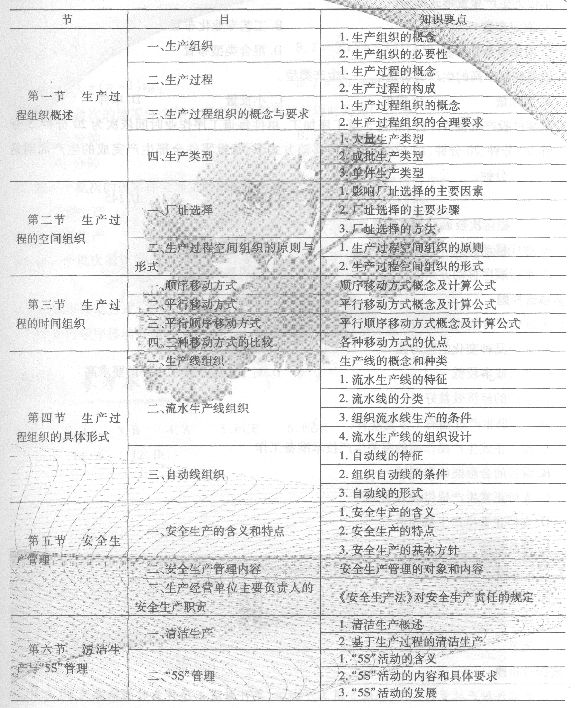 节 目 知识要点
第一节 生产过
程组织概述
一、生产组织
1. 生产组织的概念
2. 生产组织的必要性
二、生产过程
1. 生产过程的概念
2. 生产过程的构成
三、生产过程组织的概念与要求
1. 生产过程组织的概念
2. 生产过程组织的合理要求
四、生产类型
1. 大量生产类型
2. 成批生产类型
3. 单件生产类型
第二节 生产过
程的空间组织
一、厂址选择
1. 影响厂址选择的主要因素
2. 厂址选择的主要步骤
3. 厂址选择的方法
二、生产过程空间组织的原则与
形式
1. 生产过程空间组织的原则
2. 生产过程空间组织的形式
第三节 生产过
程的时间组织
一、顺序移动方式
顺序移动方式概念及计算公式
二、平行移动方式
平行移动方式概念及计算公式
三、平行顺序移动方式
平行顺序移动方式概念及计算公式
四、三种移动方式的比较
各种移动方式的优点
第四节 生产过
程组织的具体形式
一、生产线组织
生产线的概念和种类
二、流水生产线组织
1. 流水生产线的特征
2. 流水线的分类
3. 组织流水线生产的条件
4. 流水生产线的组织设计
三、自动线组织
1. 自动线的特征
2. 组织自动线的条件
3. 自动线的形式
第五节 安全生
产管理
一、安全生产的含义和特点
1. 安全生产的含义
2. 安全生产的特点
3. 安全生产的基本方针
二、安全生产管理内容
安全生产管理的对象和内容
三、生产经营单位主要负责人的
安全生产职责
《安全生产法》对安全生产责任的规定
第六节 清洁生
产与“5S”管理
一、清洁生产
1. 清洁生产概述
2. 基于生产过程的清洁生产
二、“5S”管理
1. “5S”活动的含义
2. “5S”活动的内容和具体要求
3. “5S”活动的发展